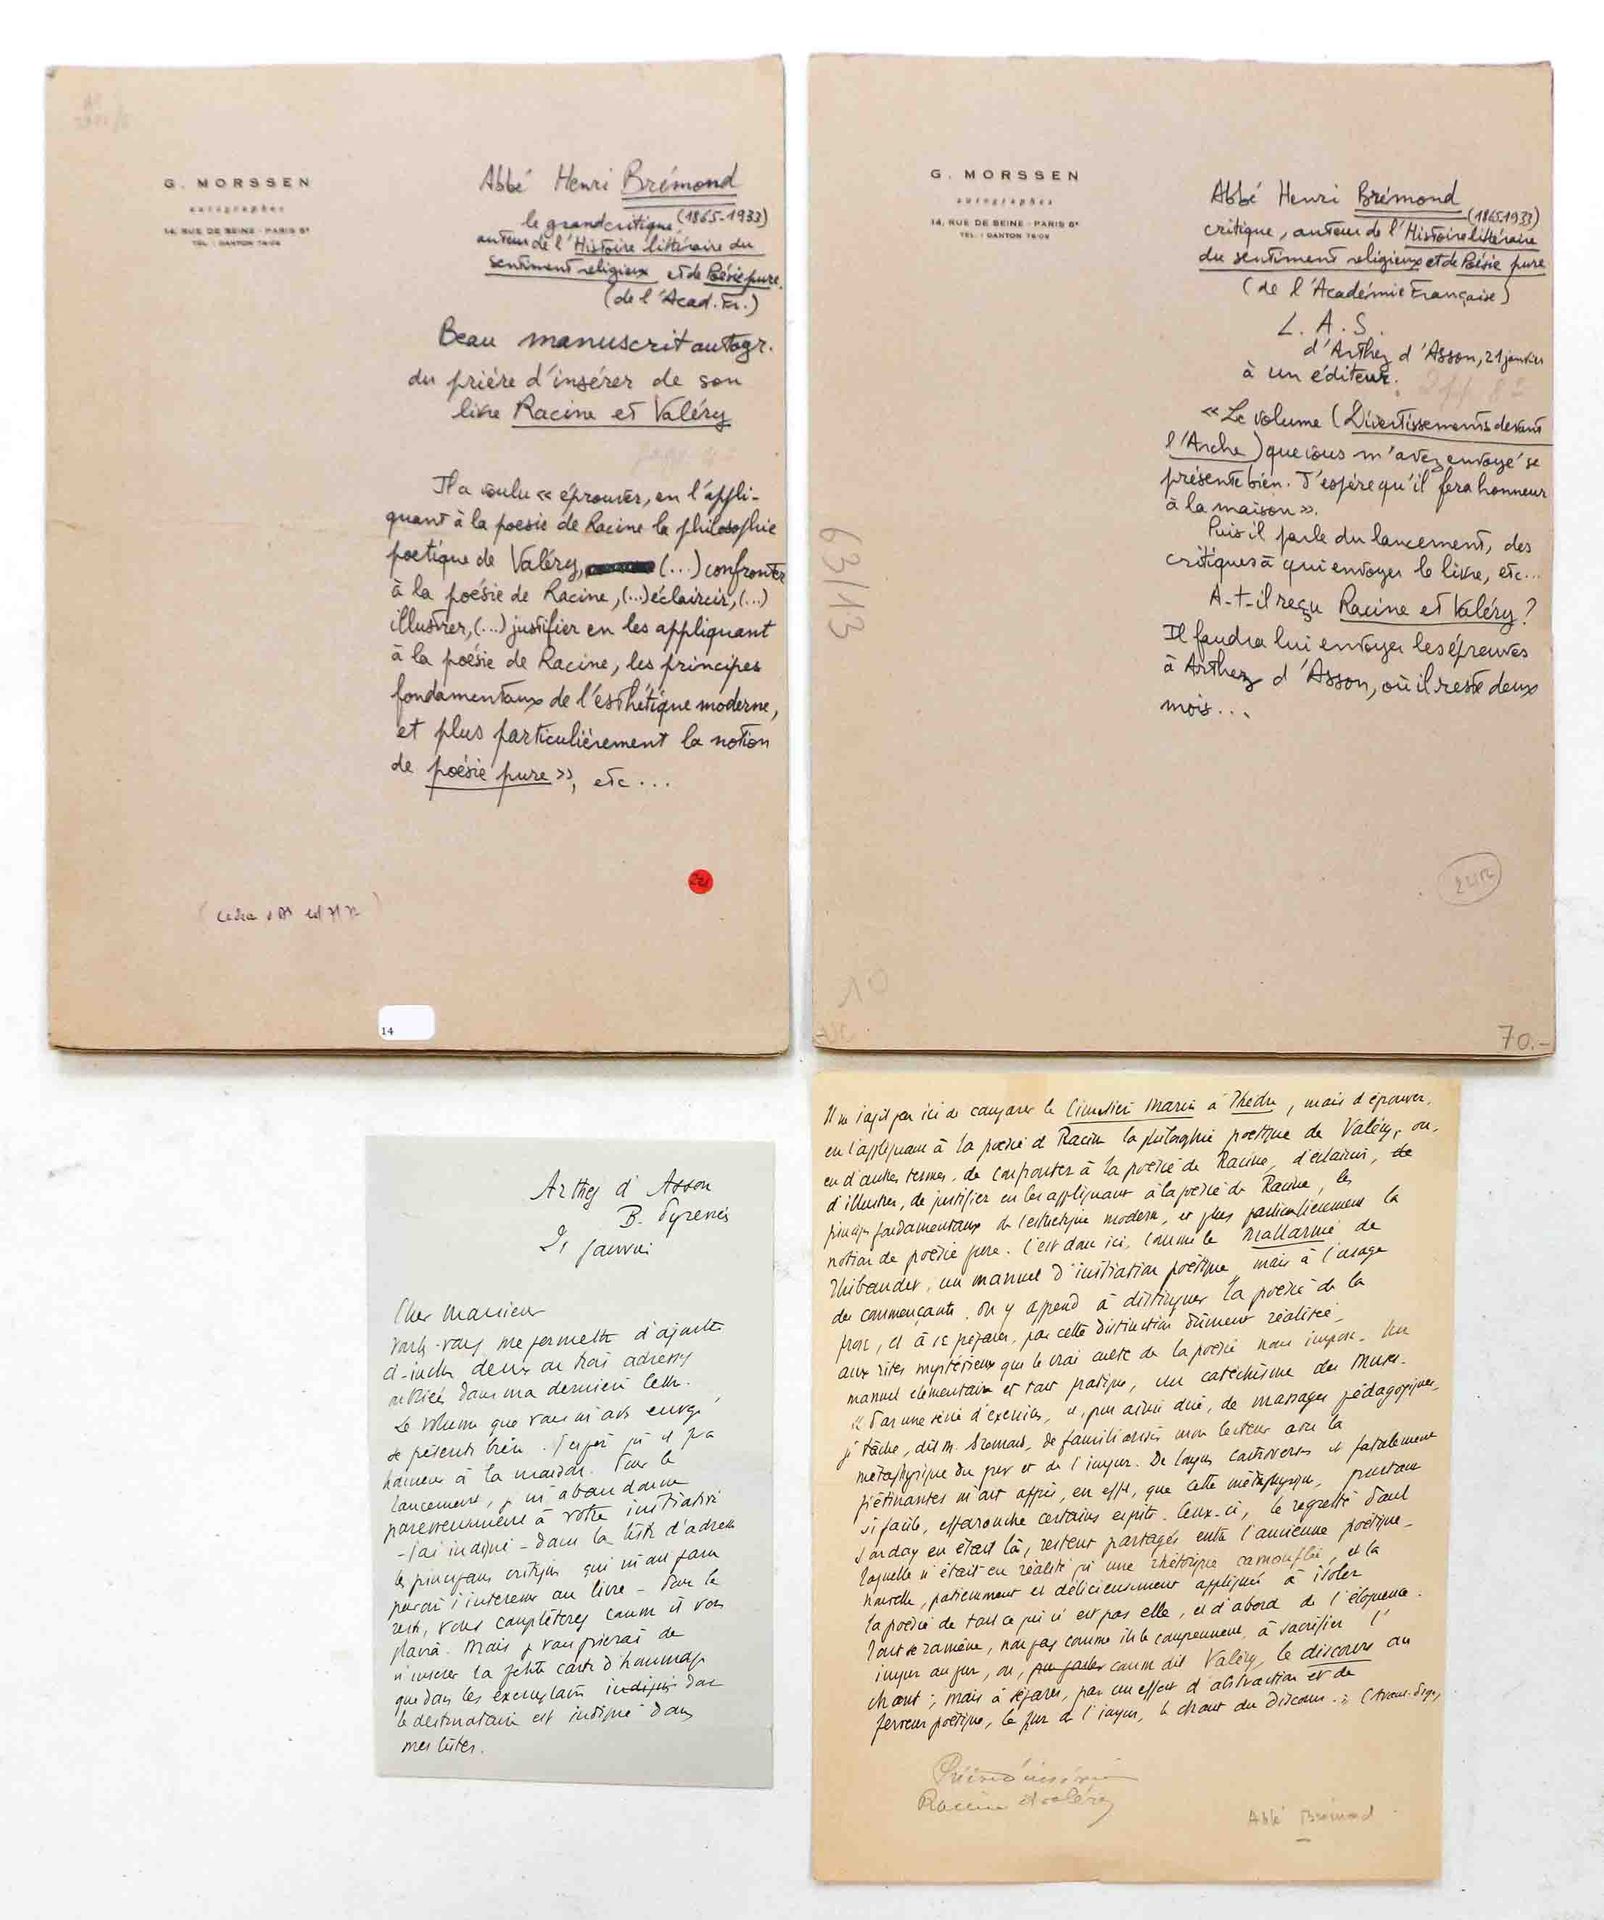 G. MORSSEN
autographes
14, RUE DE SEINE - PARIS 6e
TÉL : DANTON
Abbé Henri Brémond
(1865-1933)
le grand critique,
auteur de l'Histoire littéraire du
sentiment religieux et de Poésie pure.
(de l'Acad. Fr.)
Beau manuscrit autogr.
du prière d'insérer de son
livre Racine et Valéry
Il a voulu « éprouver, en l'appli-
quant à la poésie de Racine la philosophie
poétique de Valéry, (...) confronter
à la poésie de Racine, (...) éclaircir, (...)
illustrer, (...) justifier en les appliquant
à la poésie de Racine, les principes
fondamentaux de l'esthétique moderne,
et plus particulièrement la notion
de poésie pure », etc...
14
G. MORSSEN
autographes
14, RUE DE SEINE - PARIS 6e
TÉL. : DANTON
Abbé Henri Brémond
(1865-1933)
critique, auteur de l'Histoire littéraire
du sentiment religieux et de Poésie pure
(de l'Académie Française)
L. A. S.
d'Arthez d'Asson, 21 janvier
à un éditeur.
« Le volume (Divertissements devant
l'Arche) que vous m'avez envoyé se
présente bien. J'espère qu'il fera honneur
à la maison ».
Puis il parle du lancement, des
critiques à qui envoyer le livre, etc...
A-t-il reçu Racine et Valéry?
Il faudra lui envoyer les épreuves
à Arthez d'Asson, où il reste deux
mois...
63/13
10
70.-
Arthez d'Asson
B. Pyrénées
21 janvier
Cher Monsieur
Voulez-vous me permettre d'ajouter
ci-inclus deux ou trois adresses
oubliées dans ma dernière lettre.
Le volume que vous m'avez envoyé
se présente bien. J'espère qu'il fera
honneur à la maison. Pour le
lancement, je m'abandonne
paresseusement à votre initiative
- J'ai indiqué - dans la liste d'adresses
les principaux critiques qui m'ont paru
pouvoir s'intéresser au livre - Pour le
reste, vous compléterez comme il vous
plaira. Mais je vous prierai de
n'insérer la petite carte d'hommage
que dans les exemplaires indiqués dont
le destinataire est indiqué dans
mes listes.
Il ne s'agit pas ici de comparer le Cimetière Marin à Phèdre, mais d'éprouver,
en l'appliquant à la poésie de Racine la philosophie poétique de Valéry, ou,
en d'autres termes, de confronter à la poésie de Racine, d'éclaircir, de
d'illustrer, de justifier en les appliquant à la poésie de Racine, les
principes fondamentaux de l'esthétique moderne, et plus particulièrement la
notion de poésie pure. C'est donc ici, comme le Mallarmé de
Thibaudet, un manuel d'initiation poétique, mais à l'usage
des commençants. On y apprend à distinguer la poésie de la
prose, et à se préparer, par cette distinction dûment réalisée,
aux rites mystérieux que le vrai culte de la poésie nous impose. Un
manuel élémentaire et tout pratique, un catéchisme des Muses.
« Par une série d'exercices, et, pour ainsi dire, de massages pédagogiques,
je tâche, dit M. Bremond, de familiariser mon lecteur avec la
métaphysique du pur et de l'impur. De longues controverses et fatalement
piétinantes m'ont appris, en effet, que cette métaphysique, pourtant
si facile, effarouche certains esprits. Ceux-ci, le regretté Paul
Souday en était là, restent partagés entre l'ancienne poétique,
laquelle n'était en réalité qu'une rhétorique camouflée, et la
nouvelle, patiemment et délicieusement appliquée à isoler
la poésie de tout ce qui n'est pas elle, et d'abord de l'éloquence.
Tout se ramène, non pas comme ils le comprennent, à sacrifier l'
impur au pur, ou, comme dit Valéry, le discours au
chant ; mais à séparer, par un effort d'abstraction et de
ferveur poétique, le pur de l'impur, le chant du discours. » (Avant-Propos)
Prière d'insérer
Racine et Valéry
Abbé Brémond